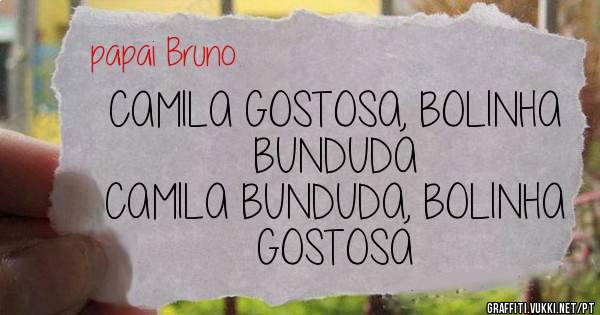 papai Bruno
CAMILA GOSTOSA, BOLINHA
BUNDUDA
CAMILA BUNDUDA, BOLINHA
GOSTOSA
GRAFFITI.VUKKI.NET/PT